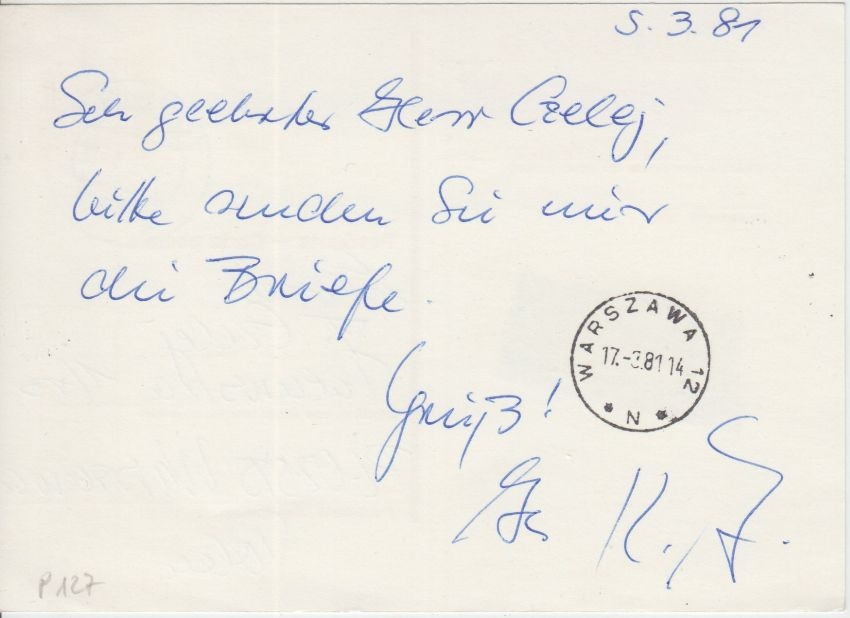 5.3.81
Sehr geehrter Herr Czelej,
bitte senden Sie mir
die Briefe.
Gruß!
Ihr K. F.
WARSZAWA 12
17.-3.81 14
* N *
P 127